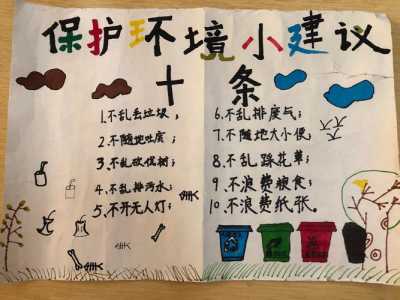 保护环境小建议
十条
1.不乱丢垃圾;
2.不随地吐痰;
3.不乱砍伐树;
4.不乱排污水;
5.不开无人灯;
6.不乱排废气;
7.不随地大小便;
8.不乱踩花草;
9.不浪费粮食;
10.不浪费纸张。